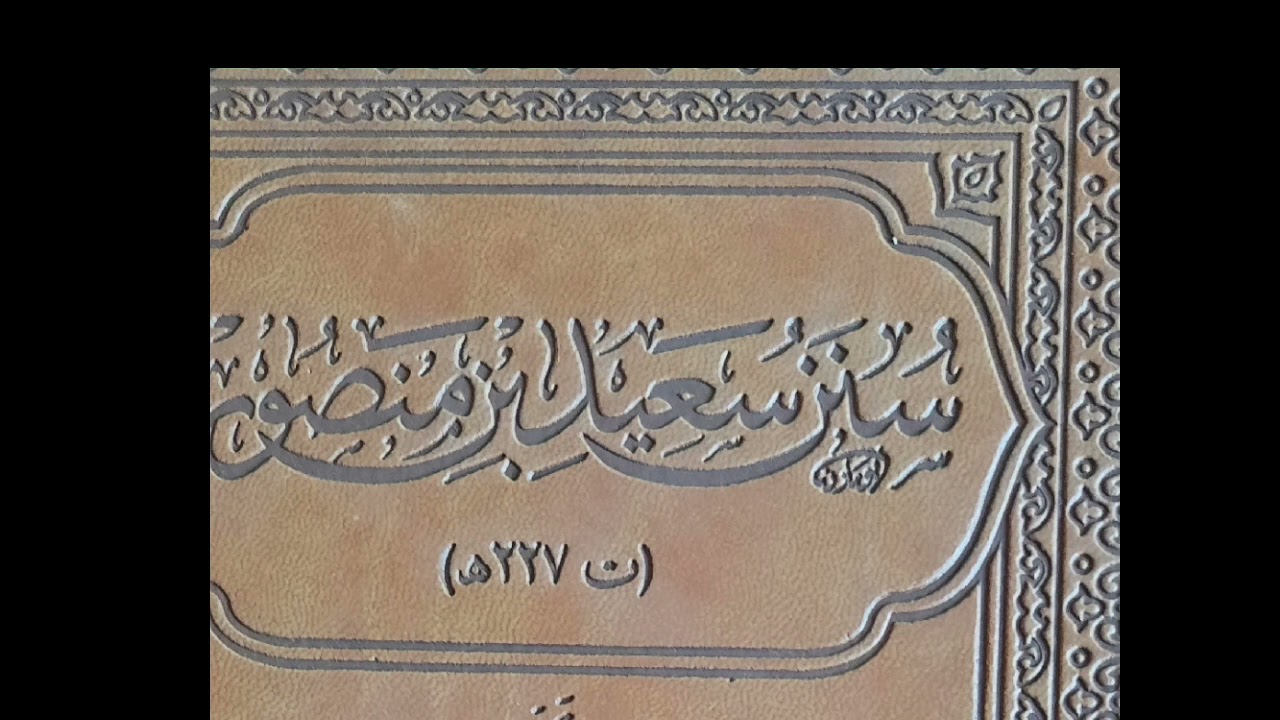 سُنَن سَعِيد بْن مَنصُور
(ت ٢٢٧هـ)